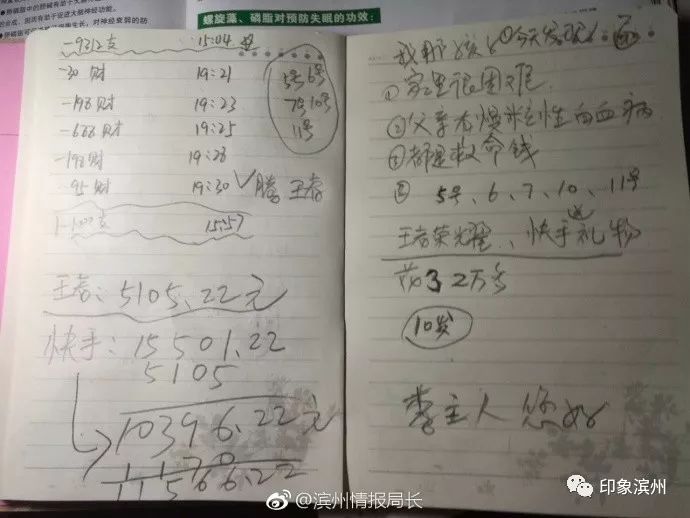 螺旋藻、磷脂对预防失眠的功效：
15:04
-30 财 19:21
-198 财 19:23
-688 财 19:25
-198 财 19:28
95 财 19:30 ✓腾 王者
5号 6号
7号 10号
11号
15:57
王者：5105.22元
快手：15501.22
5105
10396.22元
11566.22
我那孩子①今天发现
①家里很困难
②父亲有爆粒性白血病
③都是救命钱
5号、6、7、10、11号
王者荣耀、快手送礼物
花3 2万多
10岁
李主人 您好
@滨州情报局长
印象滨州